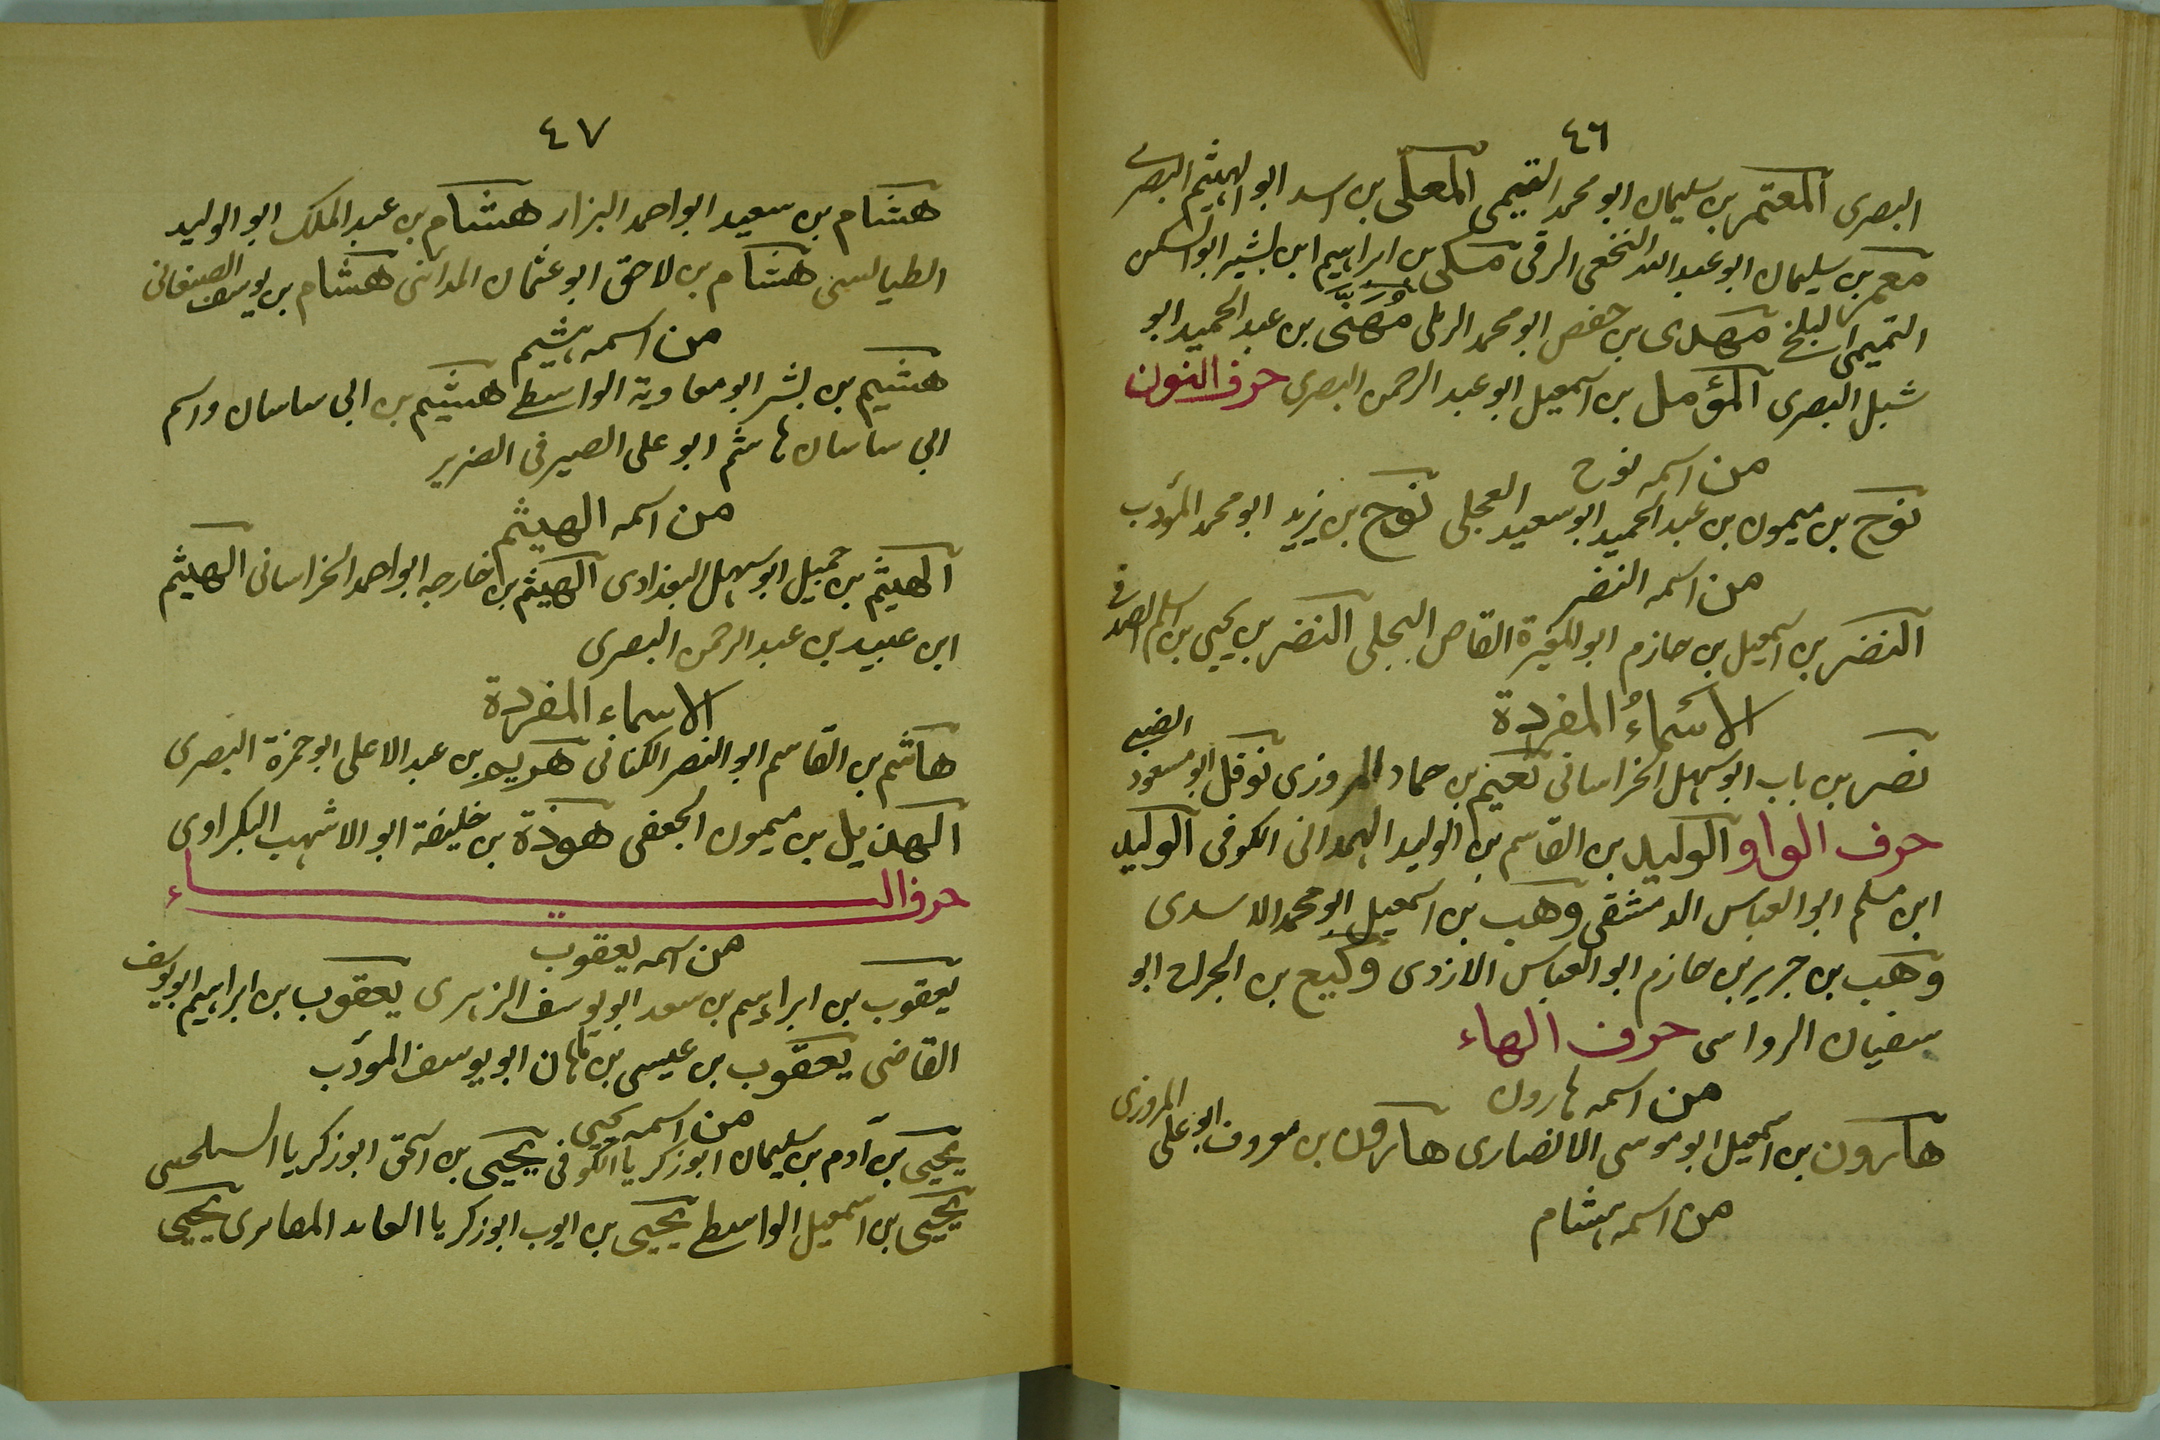 ٤٦
البصرى المعتمر بن سليمان ابو محمد التيمى المعلّى بن اسد ابو الهيثم البصرى
معمر بن سليمان ابو عبد الله النخعى الرقى مكى بن ابراهيم ابن بشير ابو السكن
التميمى البلخ مهدى بن حفص ابو محمد الرملى مُهَنَّى بن عبد الحميد ابو
شبل البصرى المؤمل بن اسمعيل ابو عبد الرحمن البصرى حرف النون
من اسمه نوح
نوح بن ميمون بن عبد الحميد ابو سعيد العجلى نوح بن يزيد ابو محمد المؤدب
من اسمه النضر
النضر بن اسمعيل بن حازم ابو المغيرة القاص البجلى النضر بن يحيى بن اسلم الصدفى
الاسماءُ المفردة
نصر بن باب ابو سهل الخراسانى نعيم بن حماد المروزى نوفل ابو مسعود الضبى
حرف الواو الوليد بن القاسم بن الوليد الهمدانى الكوفى الوليد
ابن مسلم ابو العباس الدمشقى وهب بن اسمعيل ابو محمد الاسدى
وهب بن جرير بن حازم ابو العباس الازدى وكيع بن الجراح ابو
سفيان الرواسى حرف الهاء
من اسمه هارون
هارون بن اسمعيل ابو موسى الانصارى هارون بن معروف ابو على المروزى
من اسمه هشام
٤٧
هشام بن سعيد ابو احمد البزار هشام بن عبد الملك ابو الوليد
الطيالسى هشام بن لاحق ابو عثمان المدائنى هشام بن يوسف الصنعانى
من اسمه هشيم
هشيم بن بشر ابو معاوية الواسط هشيم بن ابى ساسان واسم
ابى ساسان هاشم ابو على الصيرفى الضرير
من اسمه الهيثم
الهيثم بن جميل ابو سهل البغدادى الهيثم بن خارجه ابو احمد الخراسانى الهيثم
ابن عبيد بن عبد الرحمن البصرى
الاسماء المفردة
هاشم بن القاسم ابو النضر الكنانى هريم بن عبد الاعلى ابو حمزة البصرى
الهذيل بن ميمون الجعفى هوذة بن خليفة ابو الاشهب البكراوى
حرف الياء
من اسمه يعقوب
يعقوب بن ابراهيم بن سعد ابو يوسف الزهرى يعقوب بن ابراهيم ابو يوسف
القاضى يعقوب بن عيسى بن ماهان ابو يوسف المودب
من اسمه يحيى
يحيى بن آدم بن سليمان ابو زكريا الكوفى يحيى بن اسحق ابو زكريا السلحىى
يحيى بن اسمعيل الواسط يحيى بن ايوب ابو زكريا العابد المقابرى يحيى